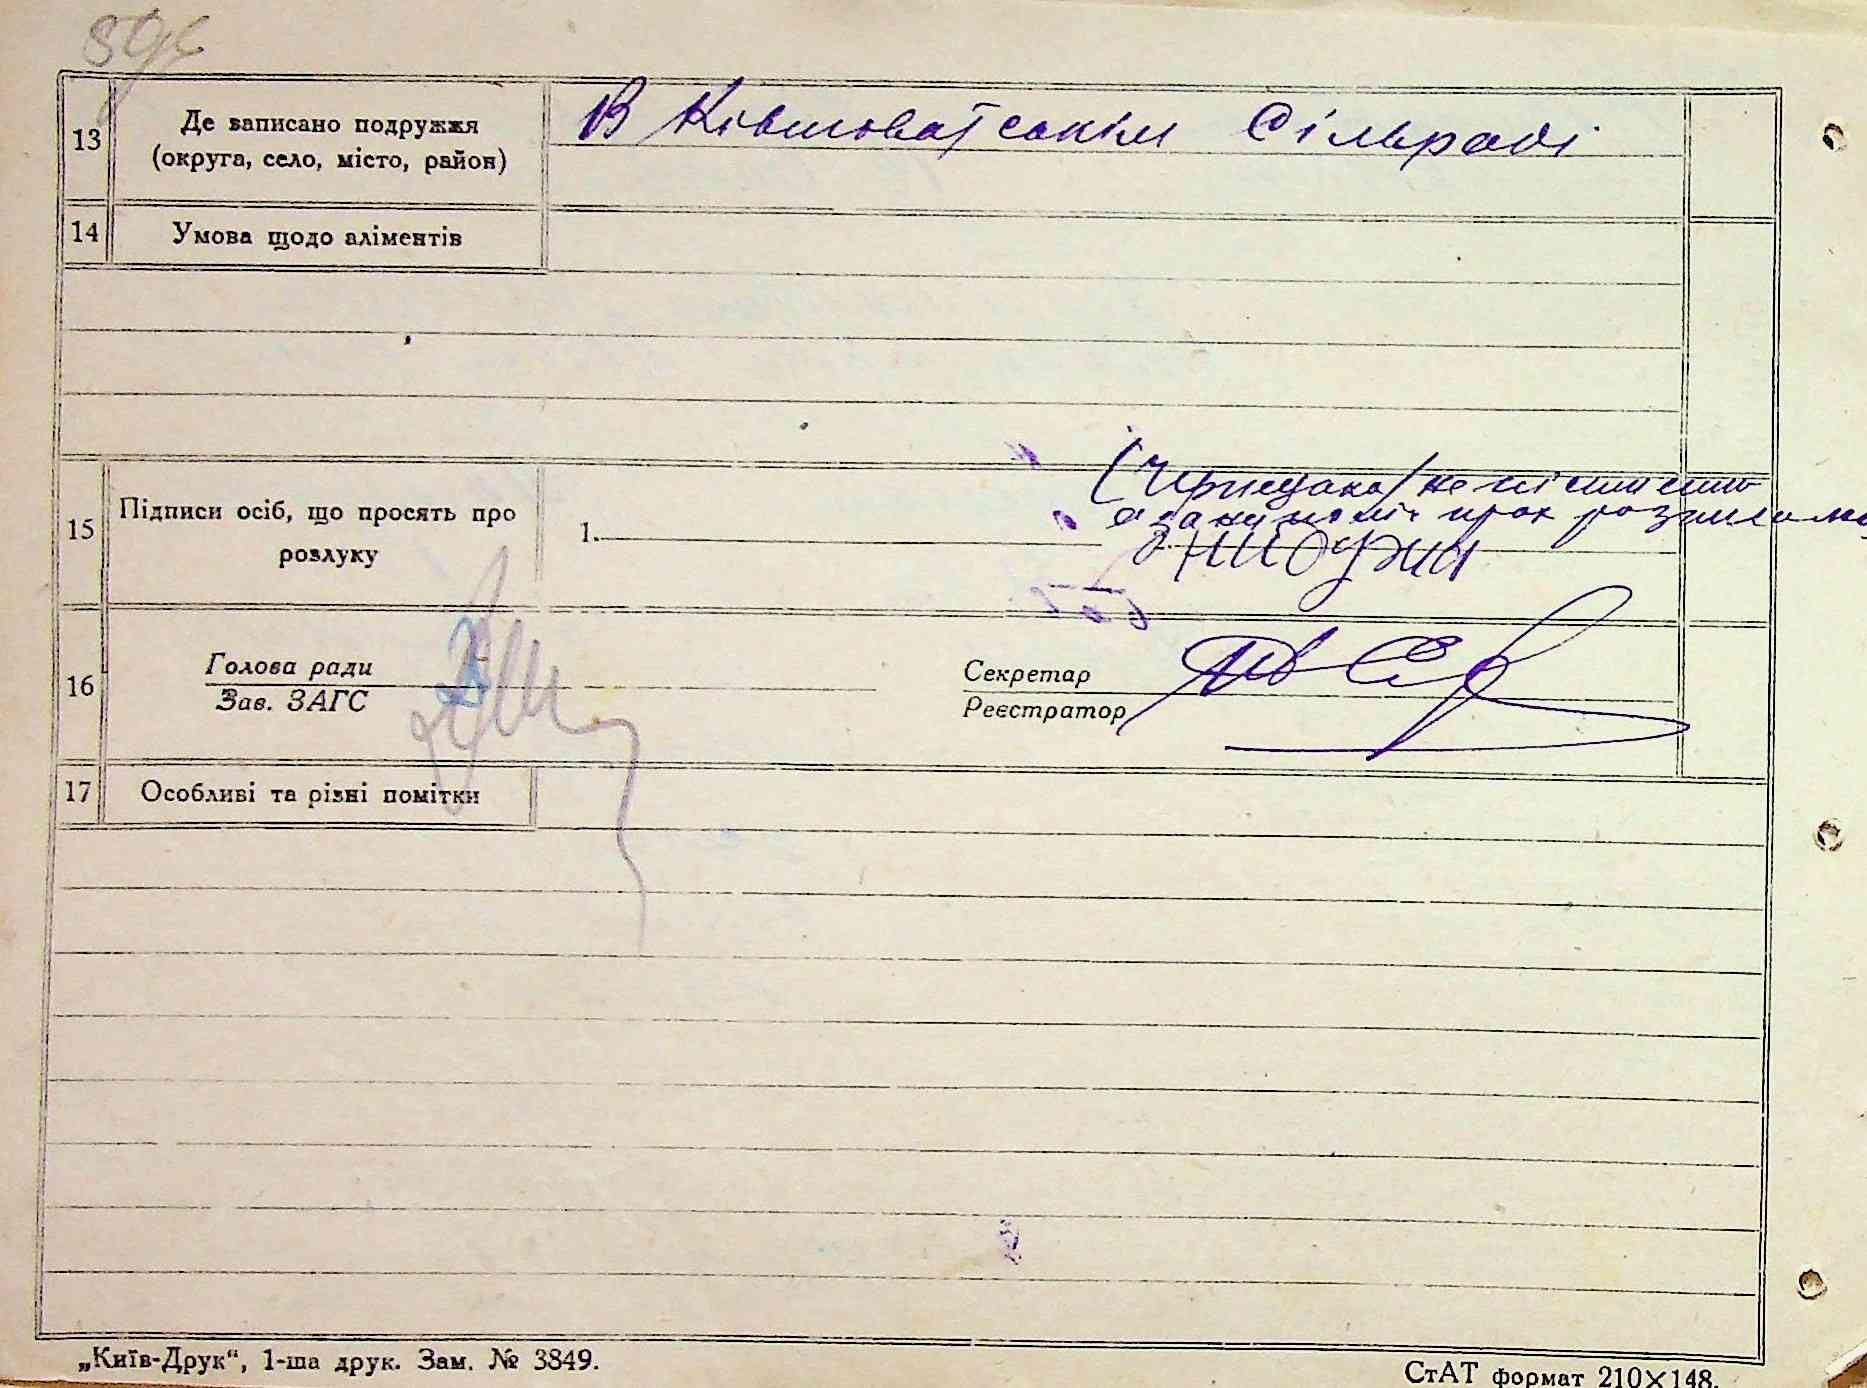 13
Де записано подружжя
(округа, село, місто, район)
В Ківшоватськім Сільраді
14
Умова щодо аліментів
15
Підписи осіб, що просять про
розлуку
1.
2.
16
Голова ради
Зав. ЗАГС
Секретар
Реєстратор
17
Особливі та різні помітки
„Київ-Друк“, 1-ша друк. Зам. № 3849.
СтАТ формат 210×148.